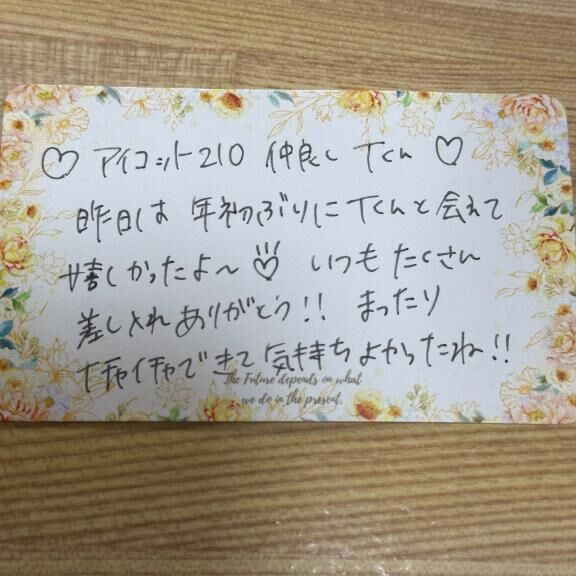 ♡ アイコット210 仲良し Tくん ♡
昨日は 年初ぶりに Tくんと会えて
嬉しかったよ〜♡ いつも たくさん
差し入れありがとう!! まったり
イチャイチャできて 気持ちよかったね!!
The Future depends on what
we do in the present.